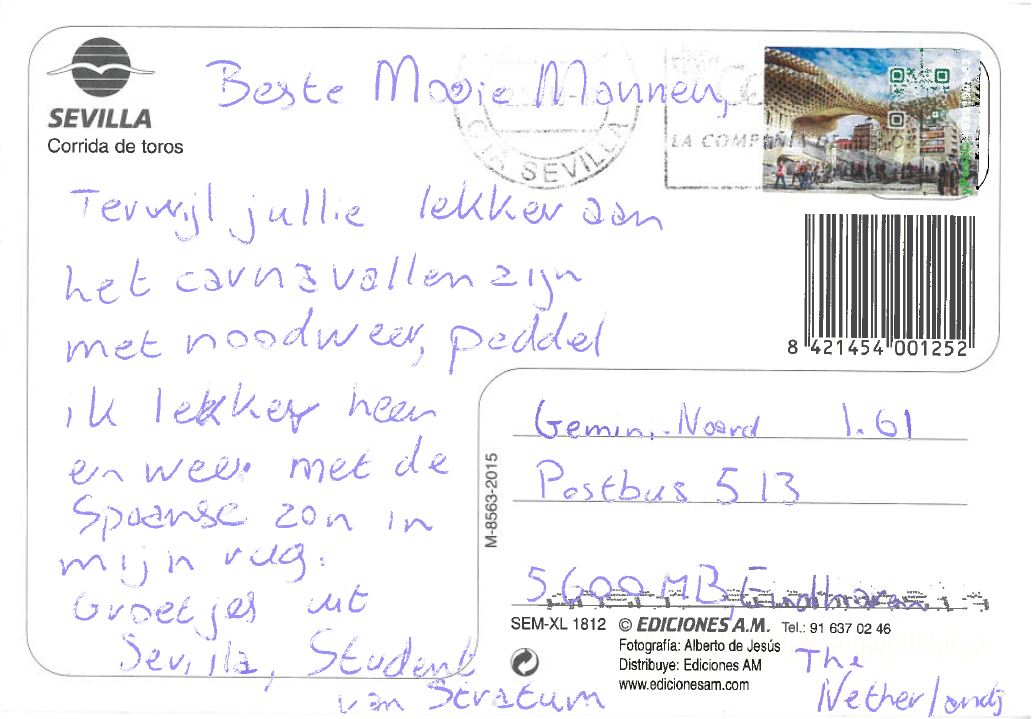 SEVILLA
Corrida de toros
Beste Mooie Mannen,
SEVILLA
LA COMPAÑIA DE
Terwijl jullie lekker aan
het carnavallen zijn
met noodweer, peddel
ik lekker heen
en weer met de
Spaanse zon in
mijn rug.
Groetjes uit
Sevilla, Student
van Stratum
8 421454 001252
M-8563-2015
Gemini-Noord 1.61
Postbus 513
5600 MB, Eindhoven
The
Netherlands
SEM-XL 1812 © EDICIONES A.M. Tel.: 91 637 02 46
Fotografía: Alberto de Jesús
Distribuye: Ediciones AM
www.edicionesam.com